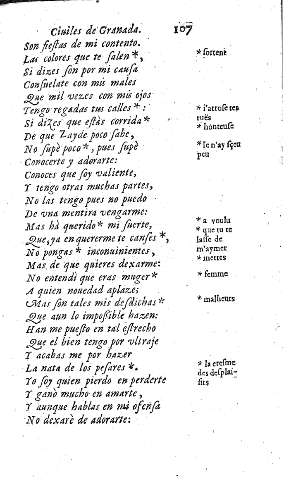 Ciuiles de Granada. 107
Son fiestas de mi contento.
Las colores que te salen*, * sortent
Si dizes son por mi causa
Consuelate con mis males
Que mil vezes con mis ojos
Tengo regadas tus calles*: * i'atrose tes ruës
Si dizes que estàs corrida* * honteuse
De que Zayde poco sabe,
No supè poco*, pues supè * Ie n'ay sçeu peu
Conocerte y adorarte:
Conoces que soy valiente,
Y tengo otras muchas partes,
No las tengo pues no puedo
De vna mentira vengarme:
Mas hà querido* mi suerte, * a voulu
Que, ya en quererme te canses*, * que tu te lasse de m'aymer
No pongas* inconuinientes, * mettes
Mas de que quieres dexarme:
No entendi que eras muger* * femme
A quien nouedad aplaze;
Mas son tales mis desdichas* * malheurs
Que aun lo impossible hazen:
Han me puesto en tal estrecho
Que el bien tengo por vltraje
Y acabas me por hazer
La nata de los pesares*. * la cresme des desplaisirs
Yo soy quien pierdo en perderte
Y gano mucho en amarte,
Y aunque hablas en mi ofensa
No dexarè de adorarte: